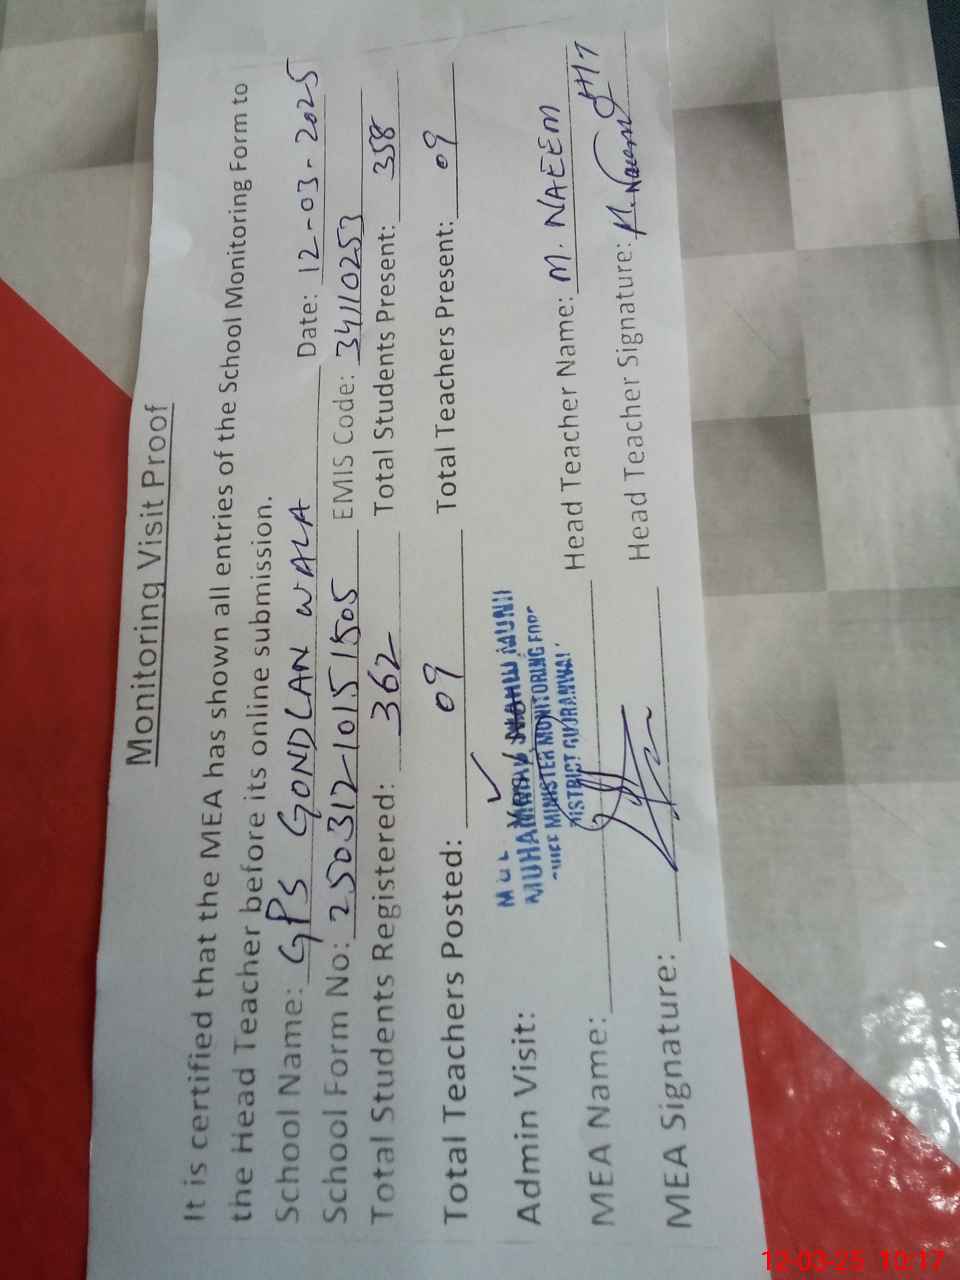 Monitoring Visit Proof
It is certified that the MEA has shown all entries of the School Monitoring Form to
the Head Teacher before its online submission.
School Name: GPS GONDLAN WALA Date: 12-03-2025
School Form No: 25031210151505 EMIS Code: 34110253
Total Students Registered: 362 Total Students Present: 358
Total Teachers Posted: 09 Total Teachers Present: 09
Admin Visit: ✓
MUHAMMAD
MINISTER MONITORING
DISTRICT GUJRANWAL
MEA Name: Head Teacher Name: M. NAEEM
MEA Signature: Head Teacher Signature: M. Naeem
12-03-25 10:17